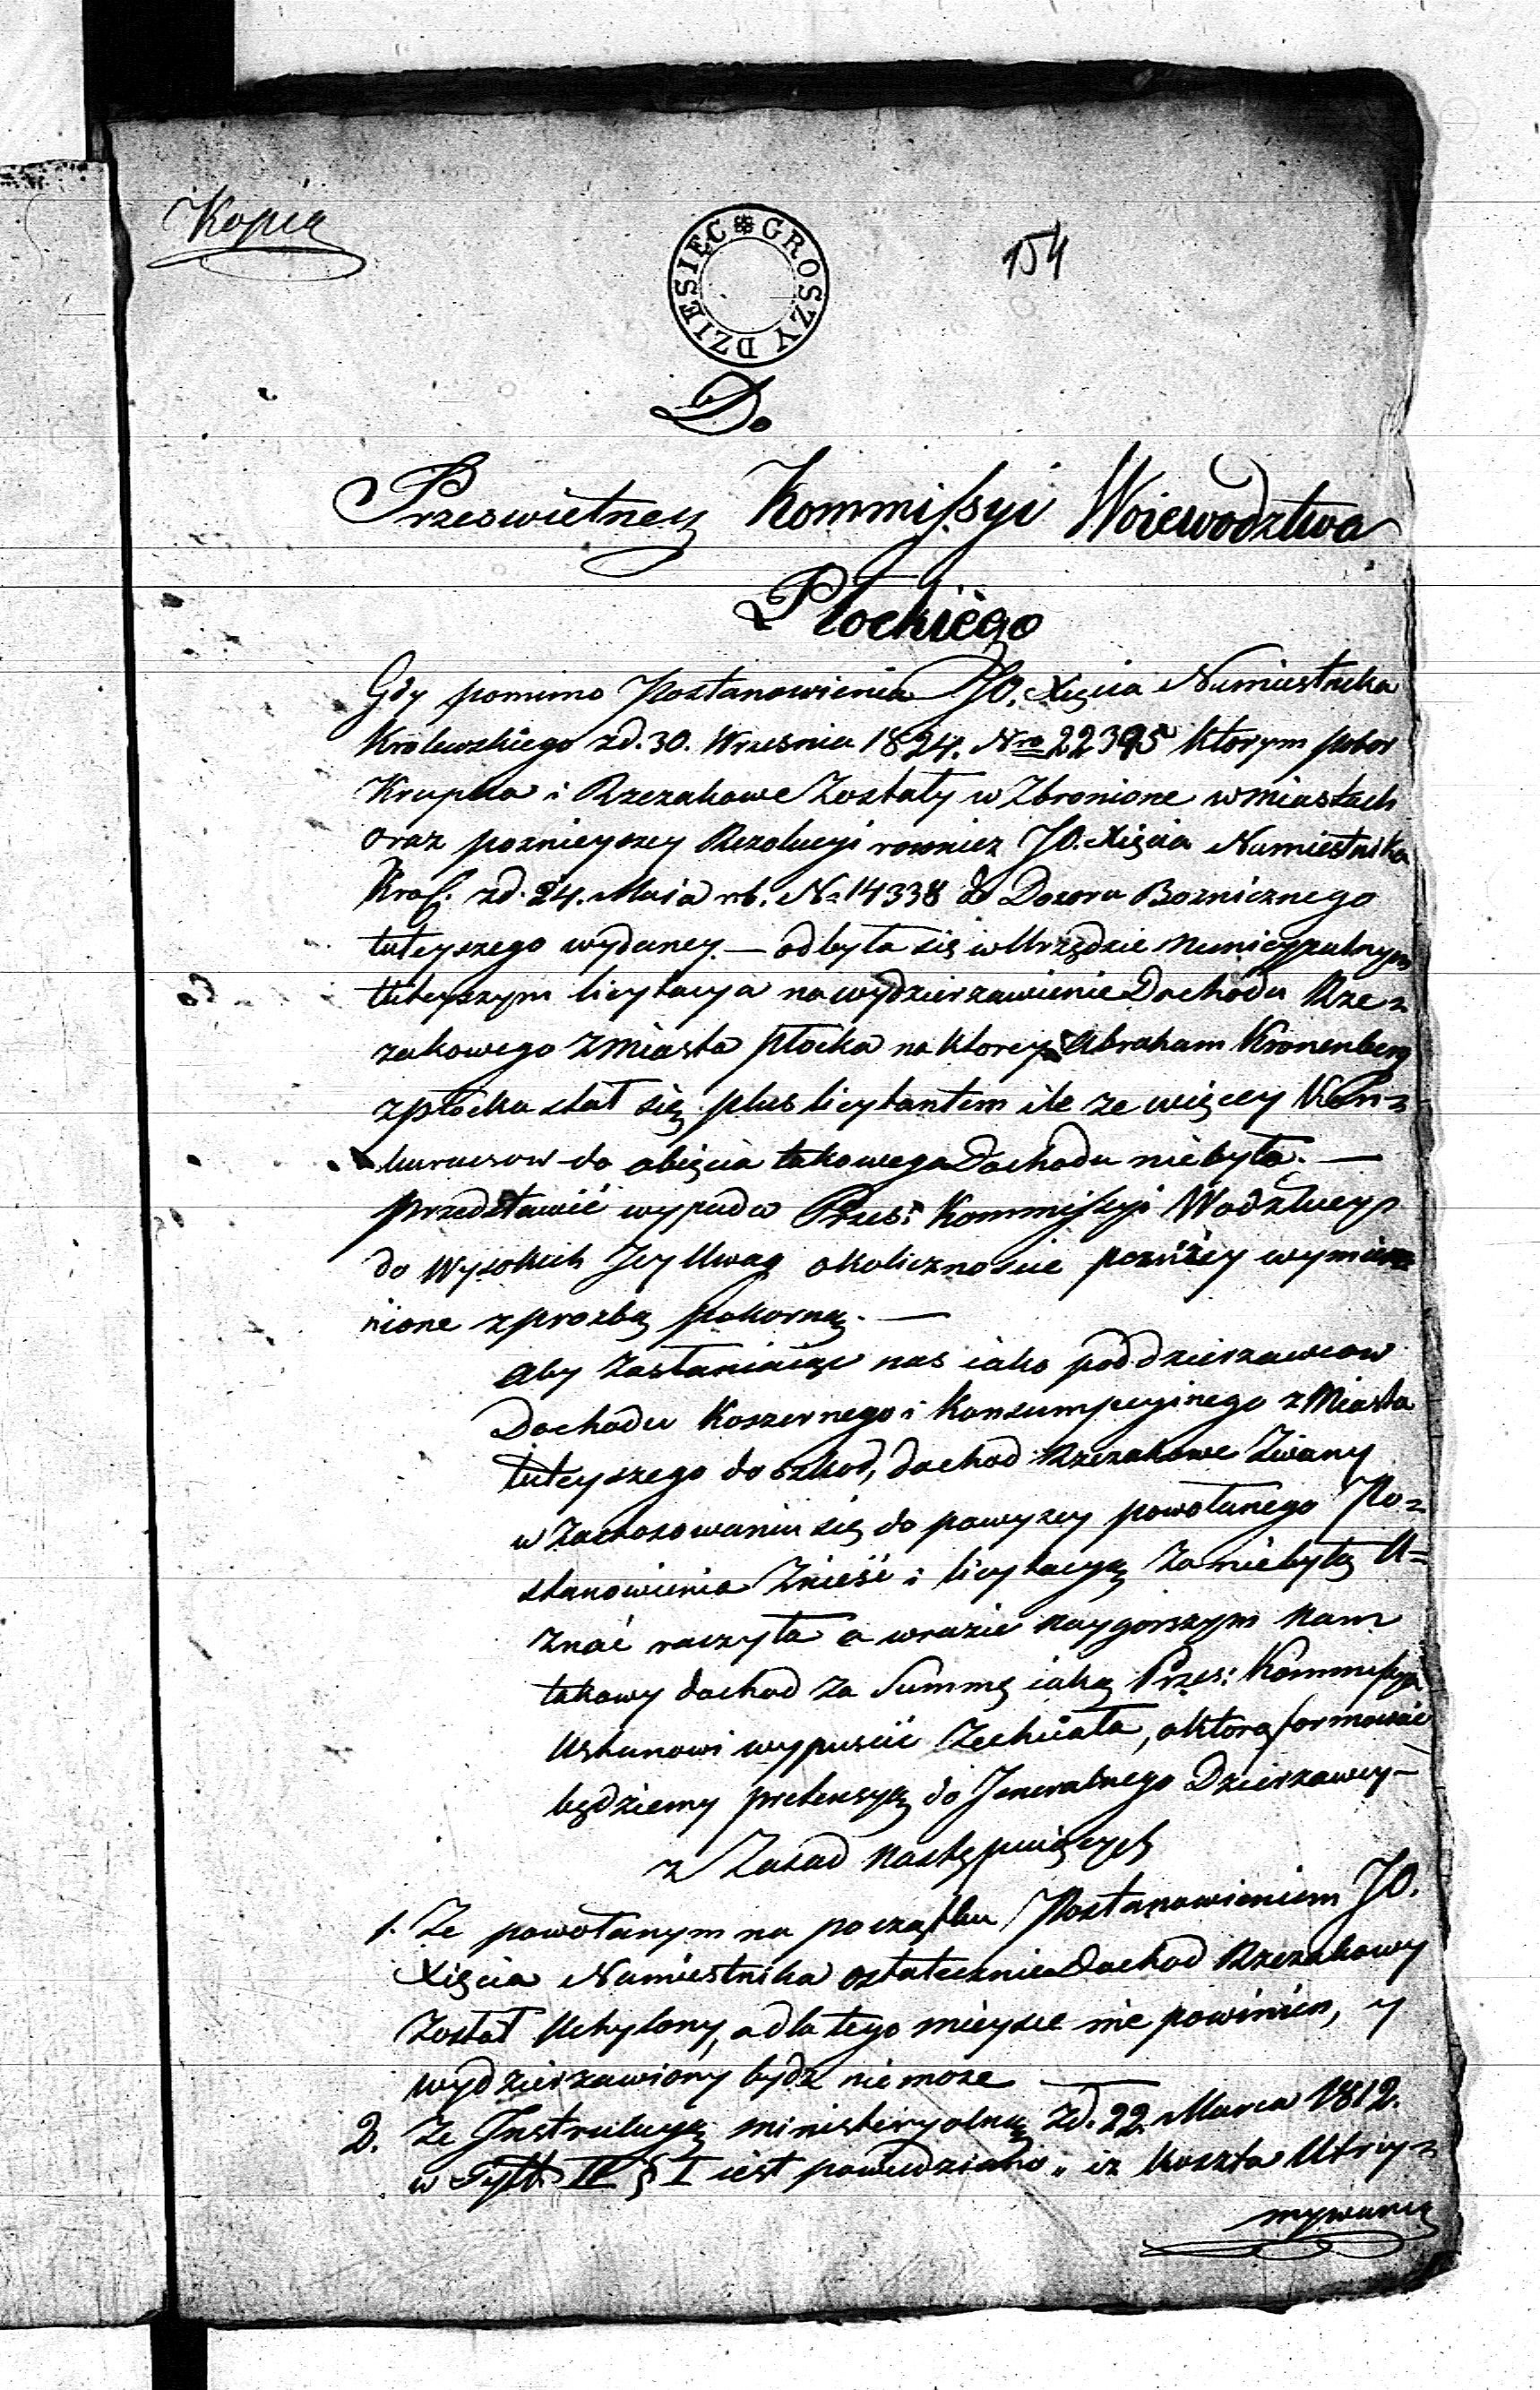 Kopia
DZIESIĘC GROSZY
154
Do
Prześwietney Kommissyi Woiewodztwa
Płockiégo
Gdy pomimo Postanowienia JO. Xięcia Namiestnika
Krolewskiego zd. 30. Wrzesnia 1824. Nro 22395 ktorym pobor
Krupka i Rzezakowe Zostały w Zbronione w miastach
oraz poznieyszey Rezolucyi rowniez JO. Xięcia Namiestnika
Krol. zd. 24. Maia rb. No 14338 do Dozoru Boznicznego
tuteyszego wydaney. — odbyła się w Urzędzie Municypalnym
tuteyszym licytacya na wydzierzawienie Dochodu Rze=
zakowego z Miasta Płocka na ktorey Abraham Kronenberg
z Płocka stał się plus licytantem ile ze więcey Kon=
kurensow do obięcia takowego Dochodu niebyło. —
Przedstawić wypada Przes: Kommissyi Wodztwey
do Wysokich Jey Uwag okolicznoscie ponizéy wymie
nione z prozbą pokorną. —
Aby Zasłaniaiąc nas iako poddzierzawcow
Dochodu Koszernego i Konsumpcyinego z Miasta
tuteyszego do szkod, dochod Rzezakowe Zwany
w Zastosowaniu się do powyzey powołanego Po=
stanowienia Znieść i licytacyą Za niebyłą U=
znać raczyła a w razie naygorszym Nam
takowy dochod Za Summę iaką Przes: Kommissya
Ustanowi wypuscić Zechciała, o ktorą formować
będziemy pretensyą do Jeneralnego Dzierzawcy —
z Zasad następuiących
1. Ze powołanym na początku Postanowieniem JO.
Xięcia Namiestnika ostatecznie Dochod Rzezakowy
Został Uchylony, a dla tego mieysce nie powinien, y
wydzierzawiony bydz niemoze —
2. Ze Instrukcyą ministeryalną zd. 22. Marca 1812.
w Tytt. II § I iest powiedziano „ iz koszta Utrzy=
mywania